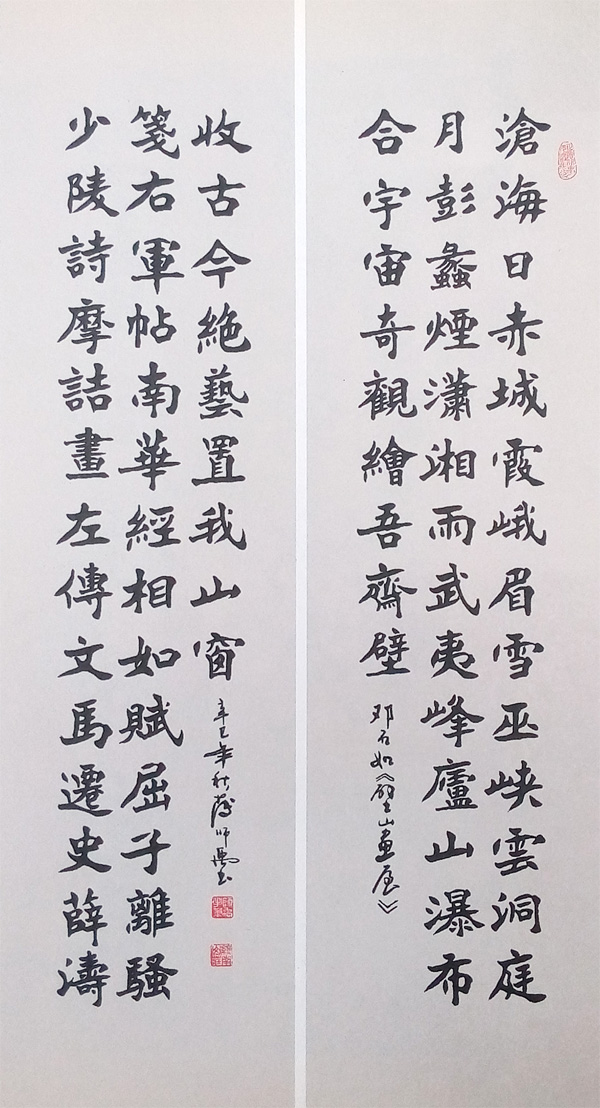 滄海日赤城霞峨眉雪巫峡雲洞庭
月彭蠡煙瀟湘雨武夷峰廬山瀑布
合宇宙奇觀繪吾齋壁
邓石如
少陵詩摩詰畫左傳文馬遷史薛濤
箋右軍帖南華經相如賦屈子離騷
收古今絶藝置我山窗
辛巳年秋